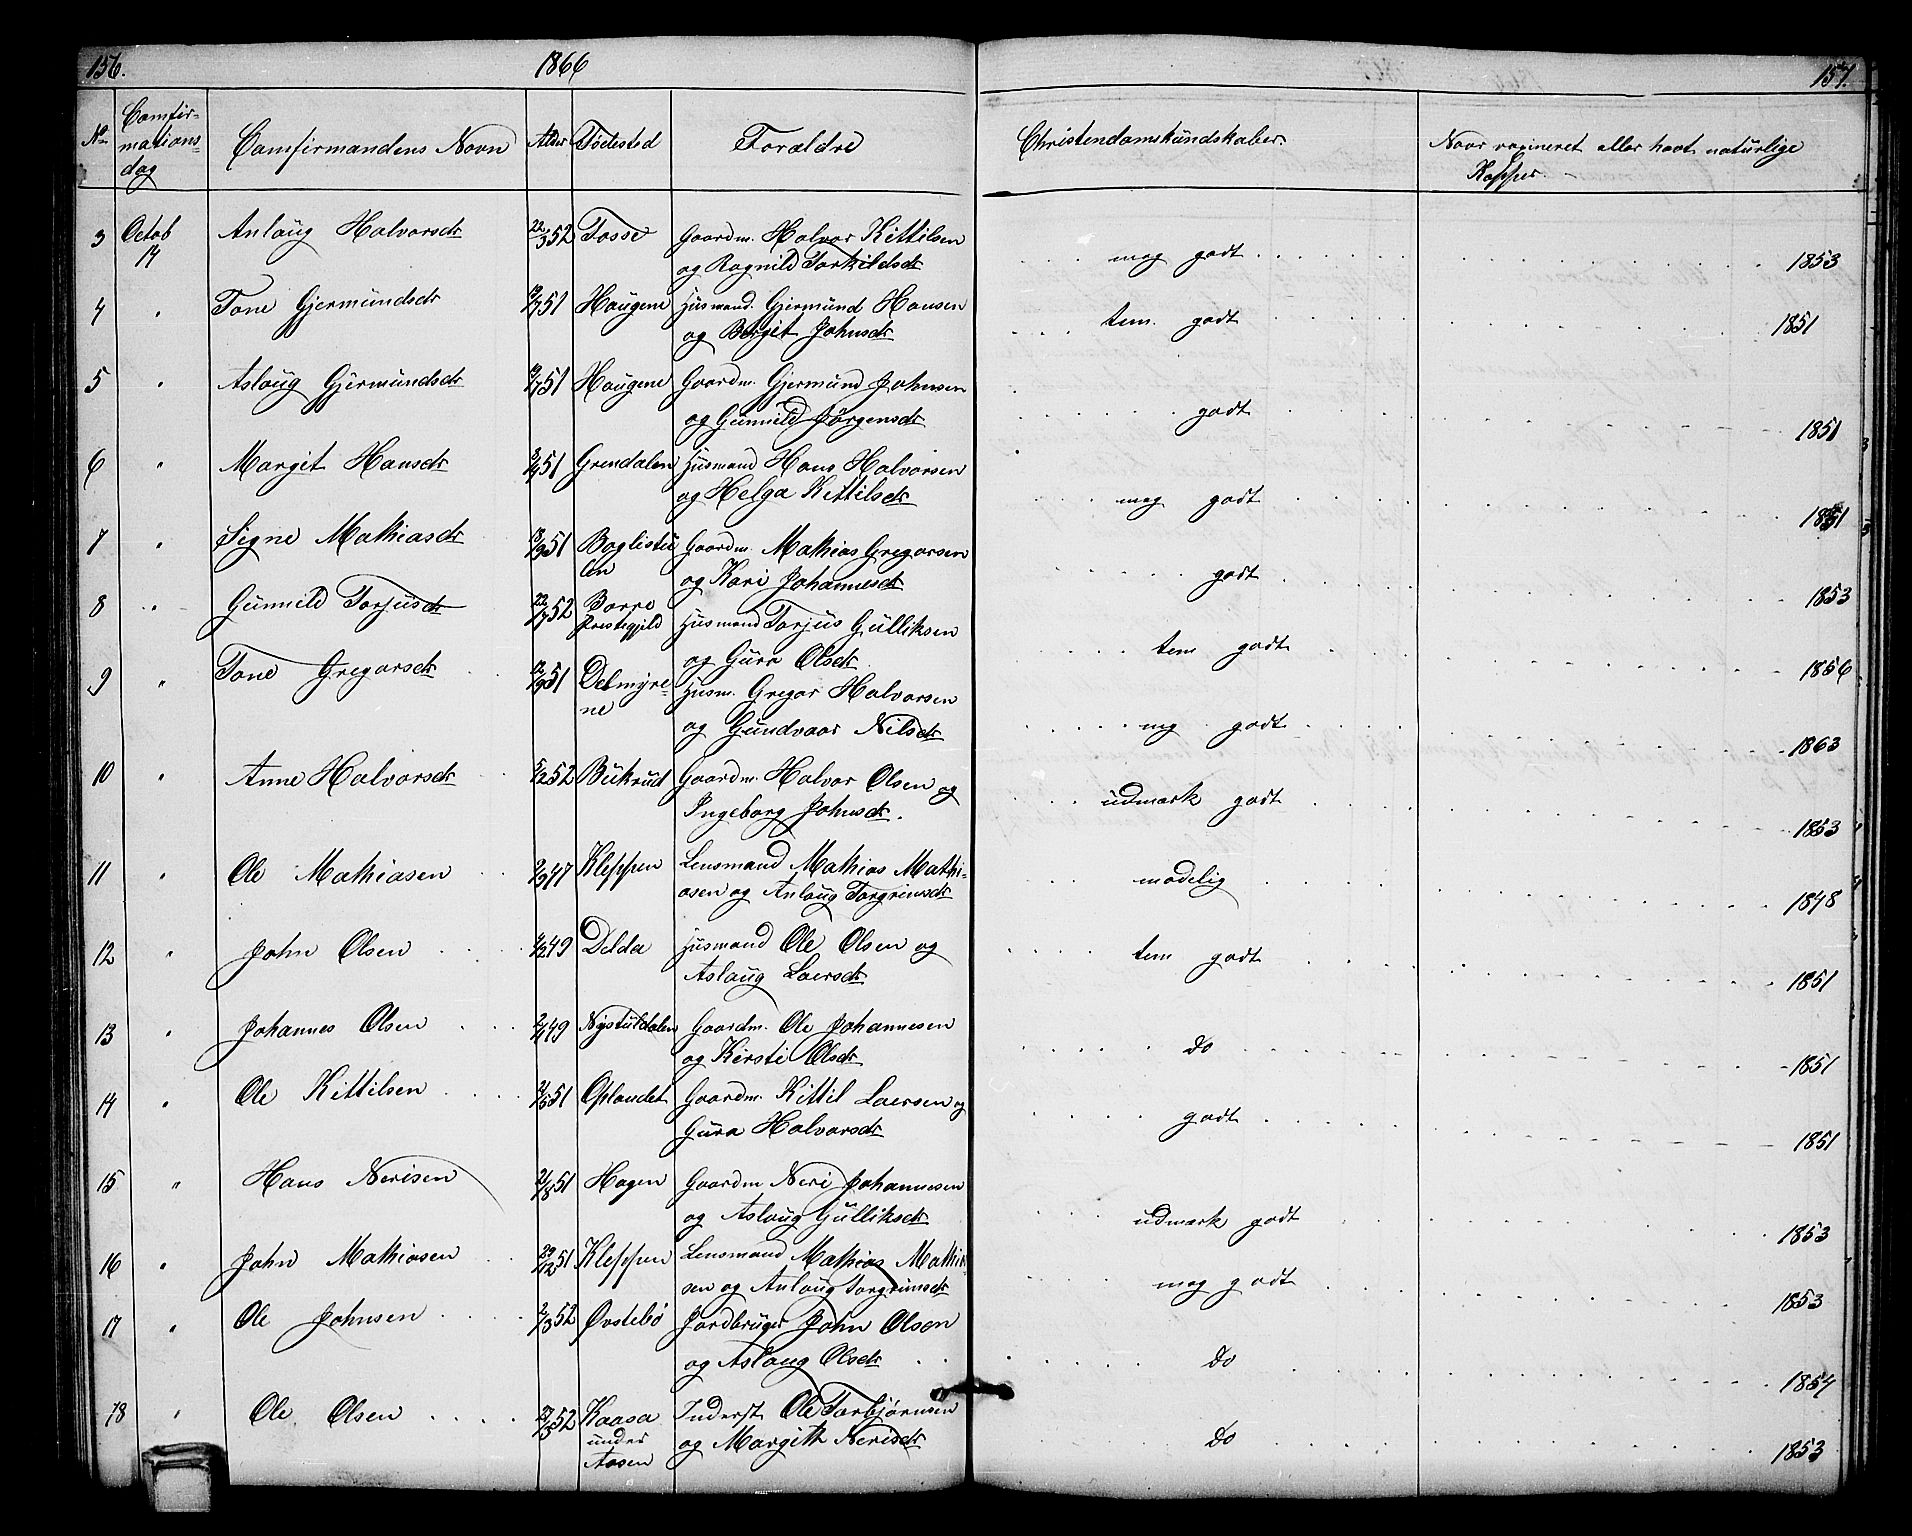 156. 1866 157.
No Comfirmations dag Comfirmandens Navn Alder Fødested Forældre Christendomskundskaber. Naar vaxineret eller havt naturlige Kopper.
3 Octob 14 Anlaug Halvorsdr 22/3 52 Fosse Gaardm. Halvor Kittilsen
og Ragnild Torkildsdr mag godt 1853
4 " Tone Gjermundsdr 51 Haugene Husmand. Gjermund Hansen
og Birgit Johnsdr tem. godt 1851
5 " Aslaug Gjermundsdr 51 Haugene Gaardm. Gjermund Johnsen
og Gunnild Jørgensdr godt 1851
6 " Margit Hansdr 51 Grendalen Husmand Hans Halvorsen
og Helga Kittilsdr mag godt
7 " Signe Mathiasdr 51 Baglistülen Gaardm. Mathias Gregarsen
og Kari Johannesdr godt 1853
8 " Gunnild Torjusdr 22/7 52 Borre Prestegjild Husmand Torjus Gulliksen
og Gura Olsdr tem godt 1856
9 " Tone Gregarsdr 51 Delmyrene Husm. Gregar Halvorsen
og Gundvaar Nilsdr mg godt 1863
10 " Anne Halvorsdr 5/2 52 Bükrud Gaardm. Halvor Olsen og
Ingeborg Johnsdr. udmærk godt 1853
11 " Ole Mathiasen 9/9 47 Kleppen Lensmand Mathias Mathi-
asen og Anlaug Torgrimsdr madelig 1848
12 " John Olsen 49 Delda Husmand Ole Olsen og
Aslaug Laersdr tem godt 1851
13 " Johannes Olsen 49 Nystuldalen Gaardm. Ole Johannesen
og Kirsti Olsdr do 1851
14 " Ole Kittilsen 51 Oplandet Gaardm. Kittil Laersen og
Gura Halvorsdr godt 1851
15 " Hans Nerisen 2/8 51 Hagen Gaardm Neri Johannesen
og Aslaug Gulliksdr udmærk godt 1853
16 " John Mathiasen 29/12 51 Kleppen Lensmand Mathias Mathia-
sen og Anlaug Torgrimsdr mag godt 1853
17 " Ole Johnsen 2/3 52 Øvstebø Jordbruger John Olsen
og Aslaug Olsdr do 1854
18 " Ole Olsen 52 Kaasa under Aasen Inderst Ole Torbjørnsen
og Margith Nerisdr do 1853